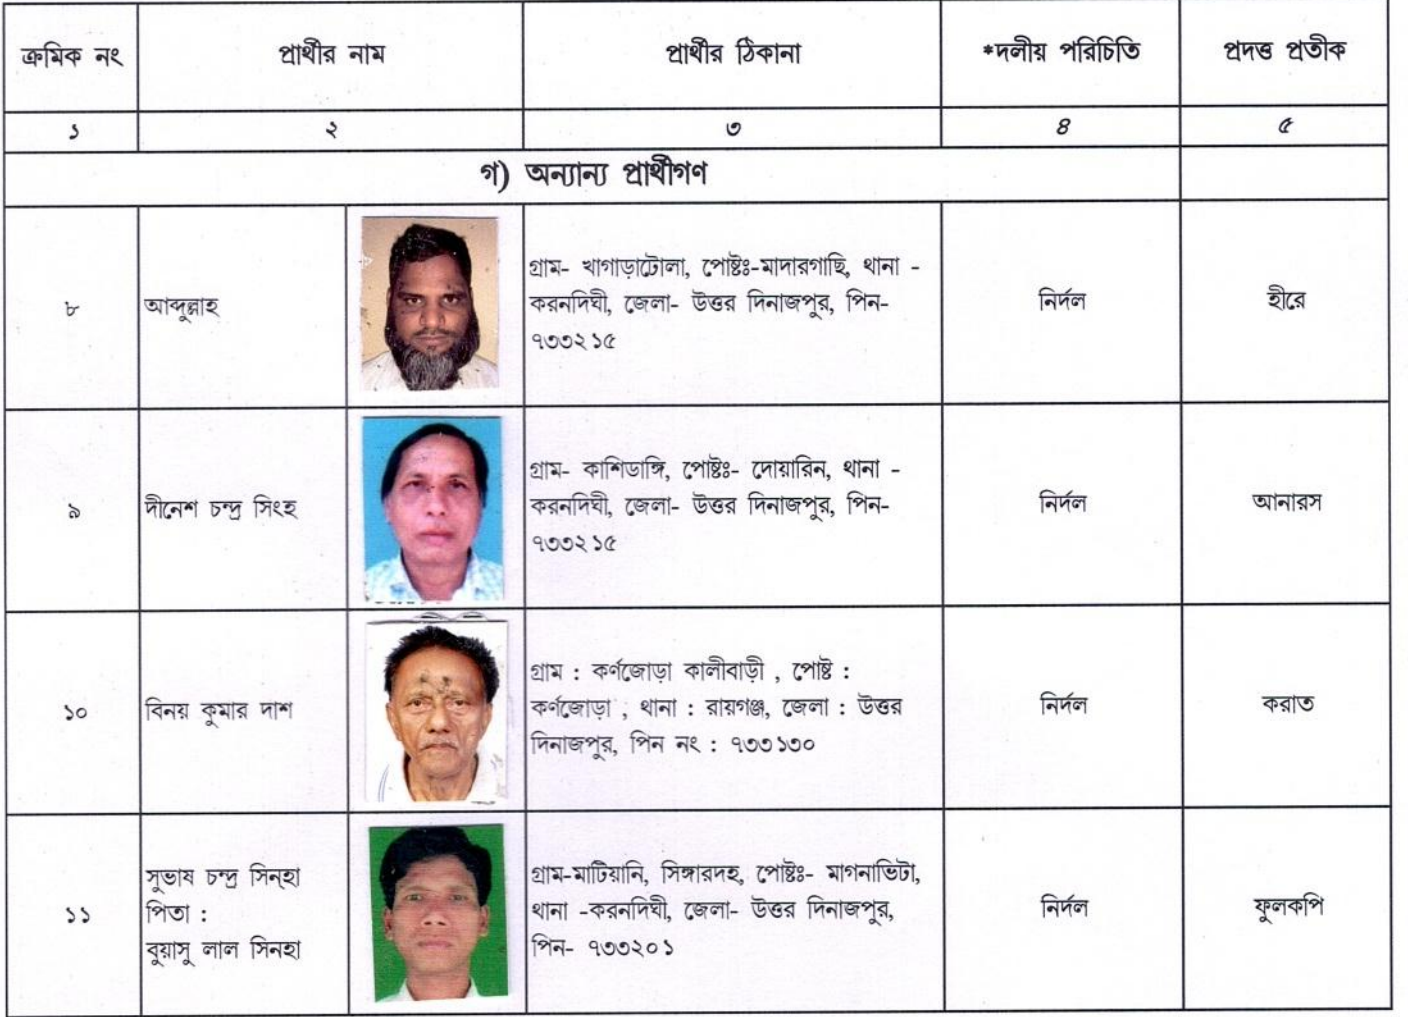 ক্রমিক নং প্রার্থীর নাম প্রার্থীর ঠিকানা *দলীয় পরিচিতি প্রদত্ত প্রতীক
১ ২ ৩ ৪ ৫
গ) অন্যান্য প্রার্থীগণ
৮ আব্দুল্লাহ
গ্রাম- খাগাড়াটোলা, পোষ্টঃ-মাদারগাছি, থানা -
করনদিঘী, জেলা- উত্তর দিনাজপুর, পিন-
৭৩৩২১৫
নির্দল হীরে
৯ দীনেশ চন্দ্র সিংহ
গ্রাম- কাশিডাঙ্গি, পোষ্টঃ- দোয়ারিন, থানা -
করনদিঘী, জেলা- উত্তর দিনাজপুর, পিন-
৭৩৩২১৫
নির্দল আনারস
১০ বিনয় কুমার দাশ
গ্রাম : কর্ণজোড়া কালীবাড়ী , পোষ্ট :
কর্ণজোড়া , থানা : রায়গঞ্জ, জেলা : উত্তর
দিনাজপুর, পিন নং : ৭৩৩১৩০
নির্দল করাত
১১ সুভাষ চন্দ্র সিন্হা
পিতা :
বুয়াসু লাল সিনহা
গ্রাম-মাটিয়ানি, সিঙ্গারদহ, পোষ্টঃ- মাগনাভিটা,
থানা -করনদিঘী, জেলা- উত্তর দিনাজপুর,
পিন- ৭৩৩২০১
নির্দল ফুলকপি